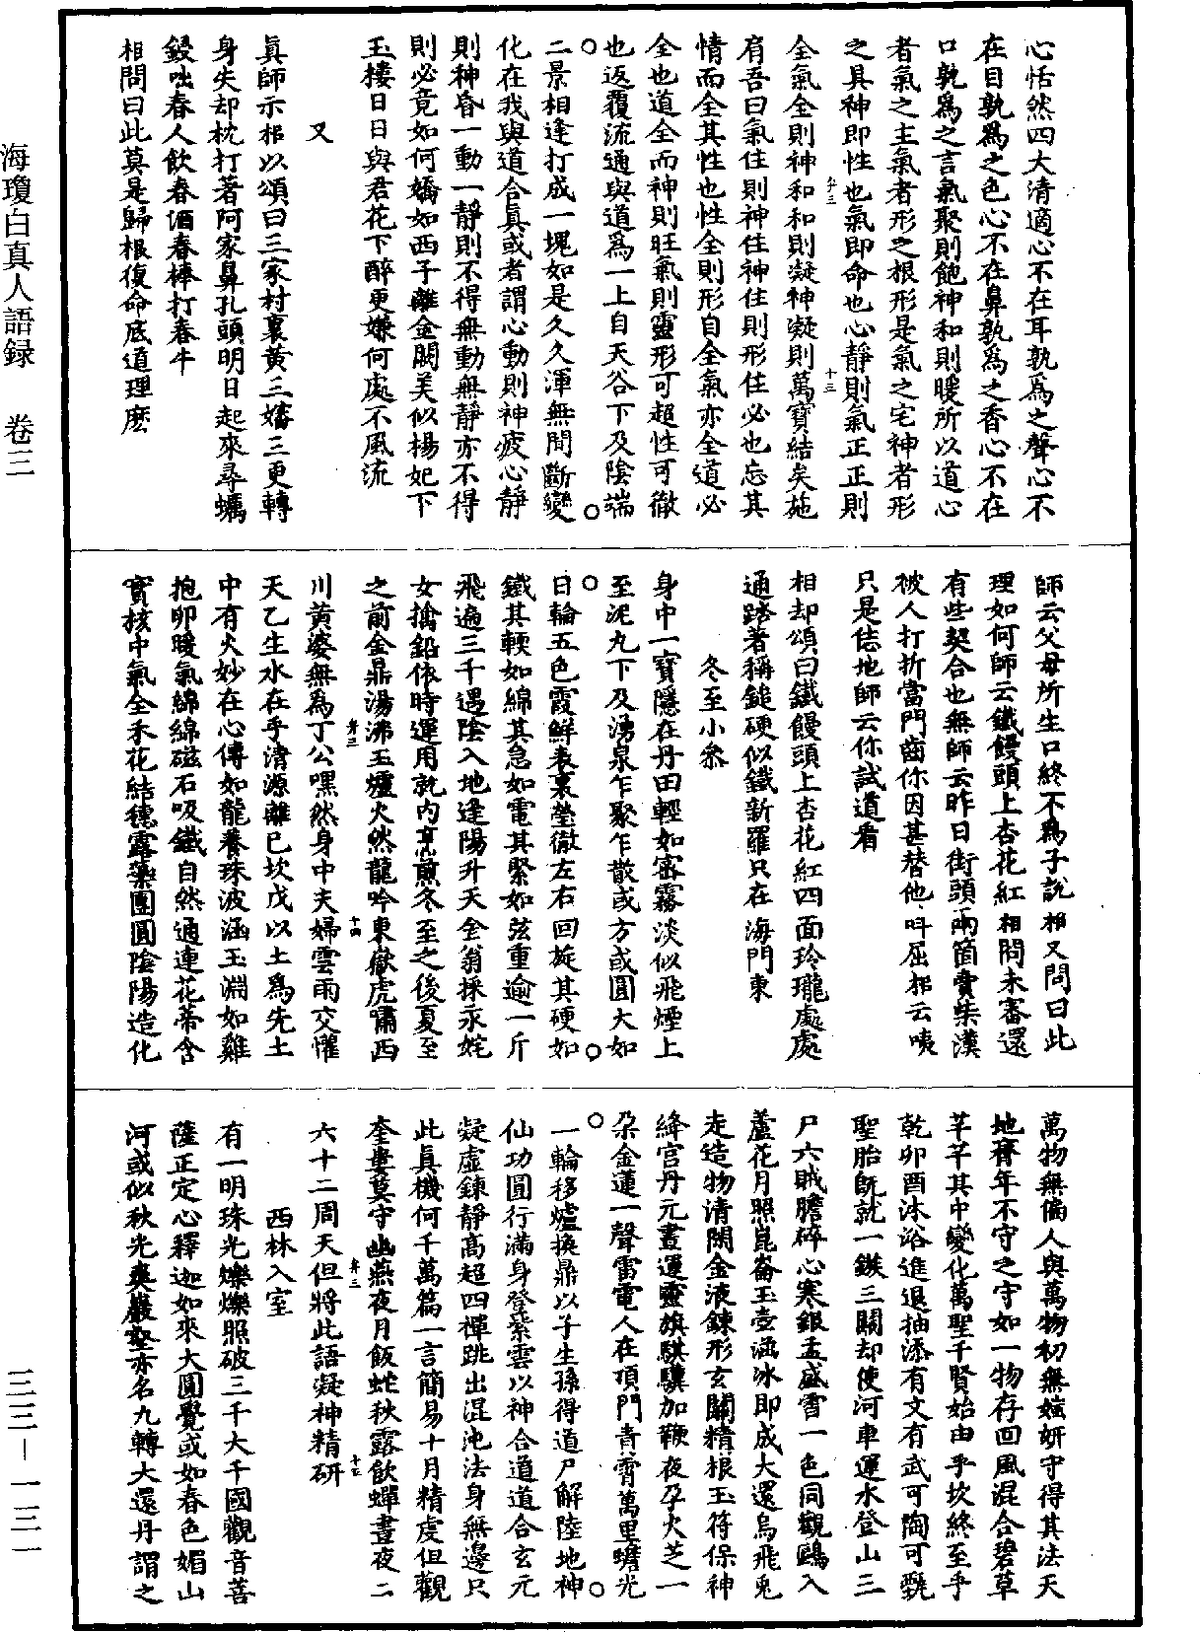 海瓊白真人語録　卷三
三三—一三一
心恬然四大清適心不在耳孰爲之聲心不
在目孰爲之色心不在鼻孰爲之香心不在
口孰爲之言氣聚則飽神和則暖所以道心
者氣之主氣者形之根形是氣之宅神者形
之具神即性也氣即命也心靜則氣正正則
全氣全則神和和則凝神凝則萬寶結矣施
肩吾曰氣住則神住神住則形住必也忘其
情而全其性也性全則形自全氣亦全道必
全也道全而神則旺氣則靈形可超性可徹
也返覆流通與道爲一上自天谷下及陰端
二景相逢打成一塊如是久久渾無間斷變
化在我與道合真或者謂心動則神疲心靜
則神昏一動一靜則不得無動無靜亦不得
則必竟如何嬌如西子離金闕美似楊妃下
玉樓日日與君花下醉更嫌何處不風流
又
眞師示相以頌曰三家村裏黃三嬸三更轉
身失却枕打著阿家鼻孔頭明日起來尋蠣
鎩咄春人飲春酒春棒打春牛
相問曰此莫是歸根復命底道理麽
師云父母所生口終不爲子說相又問曰此
理如何師云鐵饅頭上杏花紅相問未審還
有些契合也無師云昨日街頭兩箇賣柴漢
被人打折當門齒你因甚替他叫屈相云咦
只是恁地師云你試道看
相却頌曰鐵饅頭上杏花紅四面玲瓏處處
通踏著稱鎚硬似鐵新羅只在海門東
冬至小參
身中一寶隱在丹田輕如密霧淡似飛煙上
至泥丸下及湧泉乍聚乍散或方或圓大如
日輪五色霞鮮表裏瑩徹左右回旋其硬如
鐵其輭如綿其急如電其緊如弦重逾一斤
飛遍三千遇陰入地逢陽升天金翁採汞姹
女擒鉛依時運用就内烹煎冬至之後夏至
之前金鼎湯沸玉爐火然龍吟東嶽虎嘯西
川黃婆無爲丁公嘿然身中夫婦雲雨交懽
天乙生水在乎清源離巳坎戊以土爲先土
中有火妙在心傳如龍養珠波涵玉淵如雞
抱卵暖氣綿綿磁石吸鐵自然通連花蒂含
實核中氣全禾花結穗露蘂團圓陰陽造化
萬物無偏人與萬物初無媸妍守得其法天
地齊年不守之守如一物存回風混合碧草
芊芊其中變化萬聖千賢始由乎坎終至乎
乾卯酉沐浴進退抽添有文有武可陶可甄
聖胎旣就一鏃三關却使河車運水登山三
尸六賊膽碎心寒銀盂盛雪一色同觀鷗入
蘆花月照崑崙玉壺涵冰即成大還烏飛兎
走造物清閑金液鍊形玄關精根玉符保神
絳宮丹元晝運靈旗騏驥加鞭夜孕火芝一
朶金蓮一聲雷電人在頂門青霄萬里蟾光
一輪移爐換鼎以子生孫得道尸解陸地神
仙功圓行滿身登紫雲以神合道道合玄元
凝虛鍊靜高超四禪跳出混沌法身無邊只
此眞機何千萬篇一言簡易十月精虔但觀
奎婁莫守幽燕夜月飯蛇秋露飲蟬晝夜二
六十二周天但將此語凝神精研
西林入室
有一明珠光爍爍照破三千大千國觀音菩
薩正定心釋迦如來大圓覺或如春色媚山
河或似秋光爽巖壑亦名九轉大還丹謂之